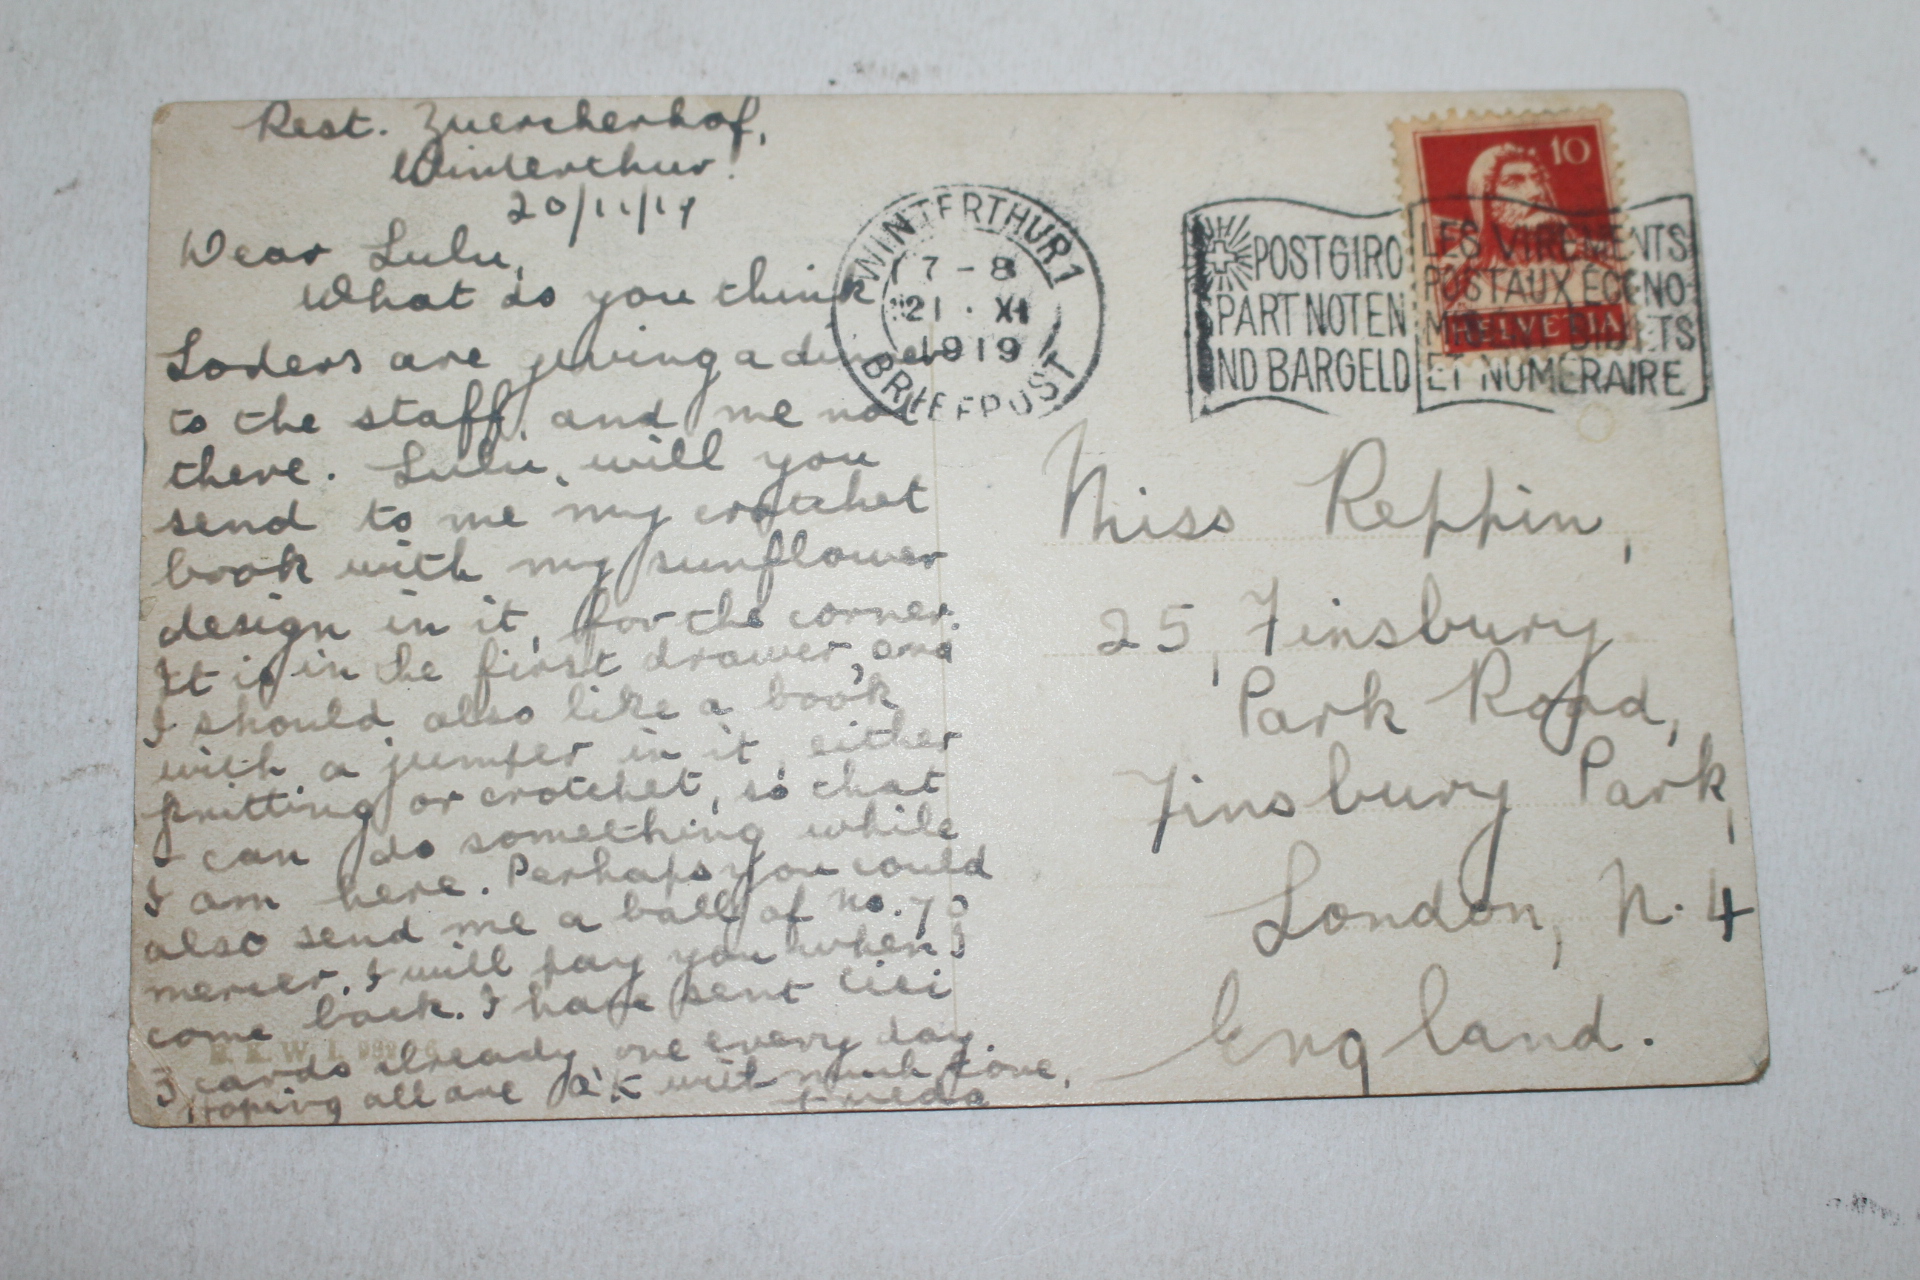 Rest. Zuercherhof,
Winterthur.
20/11/19
Dear Lulu,
What do you think
Loders are giving a dinner
to the staff, and me not
there. Lulu, will you
send to me my crotchet
book with my sunflower
design in it, for the corner.
It is in the first drawer, and
I should also like a book
with a jumper in it, either
knitting or crotchet, so that
I can do something while
I am here. Perhaps you could
also send me a ball of No. 70
mercer. I will pay you when I
come back. I have sent Lili
3 cards already, one every day.
Hoping all are O.K. with much love,
WINTERTHUR 1
7-8
21. XI
1919
BRIEFPOST
POSTGIRO
SPART NOTEN
UND BARGELD
LES VIREMENTS
POSTAUX ÉCONO-
MISENT BILLETS
ET NUMÉRAIRE
10
HELVETIA
Miss Reppin,
25, Finsbury
Park Road,
Finsbury Park,
London, N. 4
England.